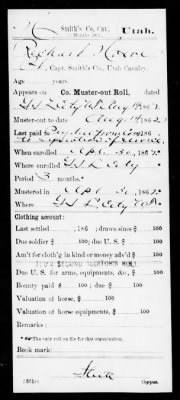 Smith's Co. Cav. Utah.
(3 Months 1862.)
Richard Howe
Capt. Smith's Co., Utah Cavalry.
Age years.
Appears on Co. Muster-out Roll,
Muster-out to Aug 14, 1862
Last paid
to expiration of service
When enrolled Apl 30, 1862
Where enrolled S L City
Period 3 months.*
Mustered in Apl 30, 1862
Where S L City
Clothing account:
Last settled , 186 ; drawn since $ 100
Due soldier $ 100; due U. S. $ 100
Am't for cloth'g in kind or money adv'd $ 100
Due U. S. for arms, equipments, &c., $ 100
Bounty paid $ 100; due $ 100
Valuation of horse, $ 100
Valuation of horse equipments, $ 100
Remarks:
*The only roll on file for this organization.
Book mark:
(361c)
Copyist.